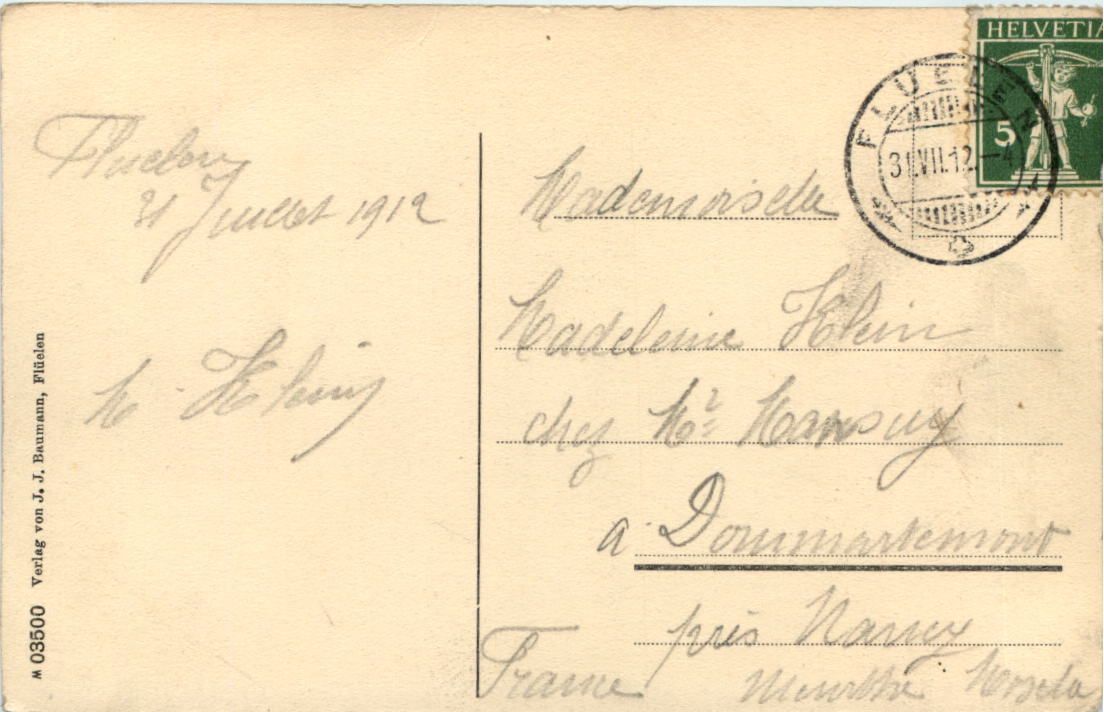 HELVETIA
5
FLUELEN
31.VII.12.–4
Fluelen
31 Juillet 1912
M. Klein
Mademoiselle
Madeleine Klein
chez Mr Mansuy
a Dommartemont
près Nancy
France Meurthe Moselle
M 03500 Verlag von J. J. Baumann, Flüelen